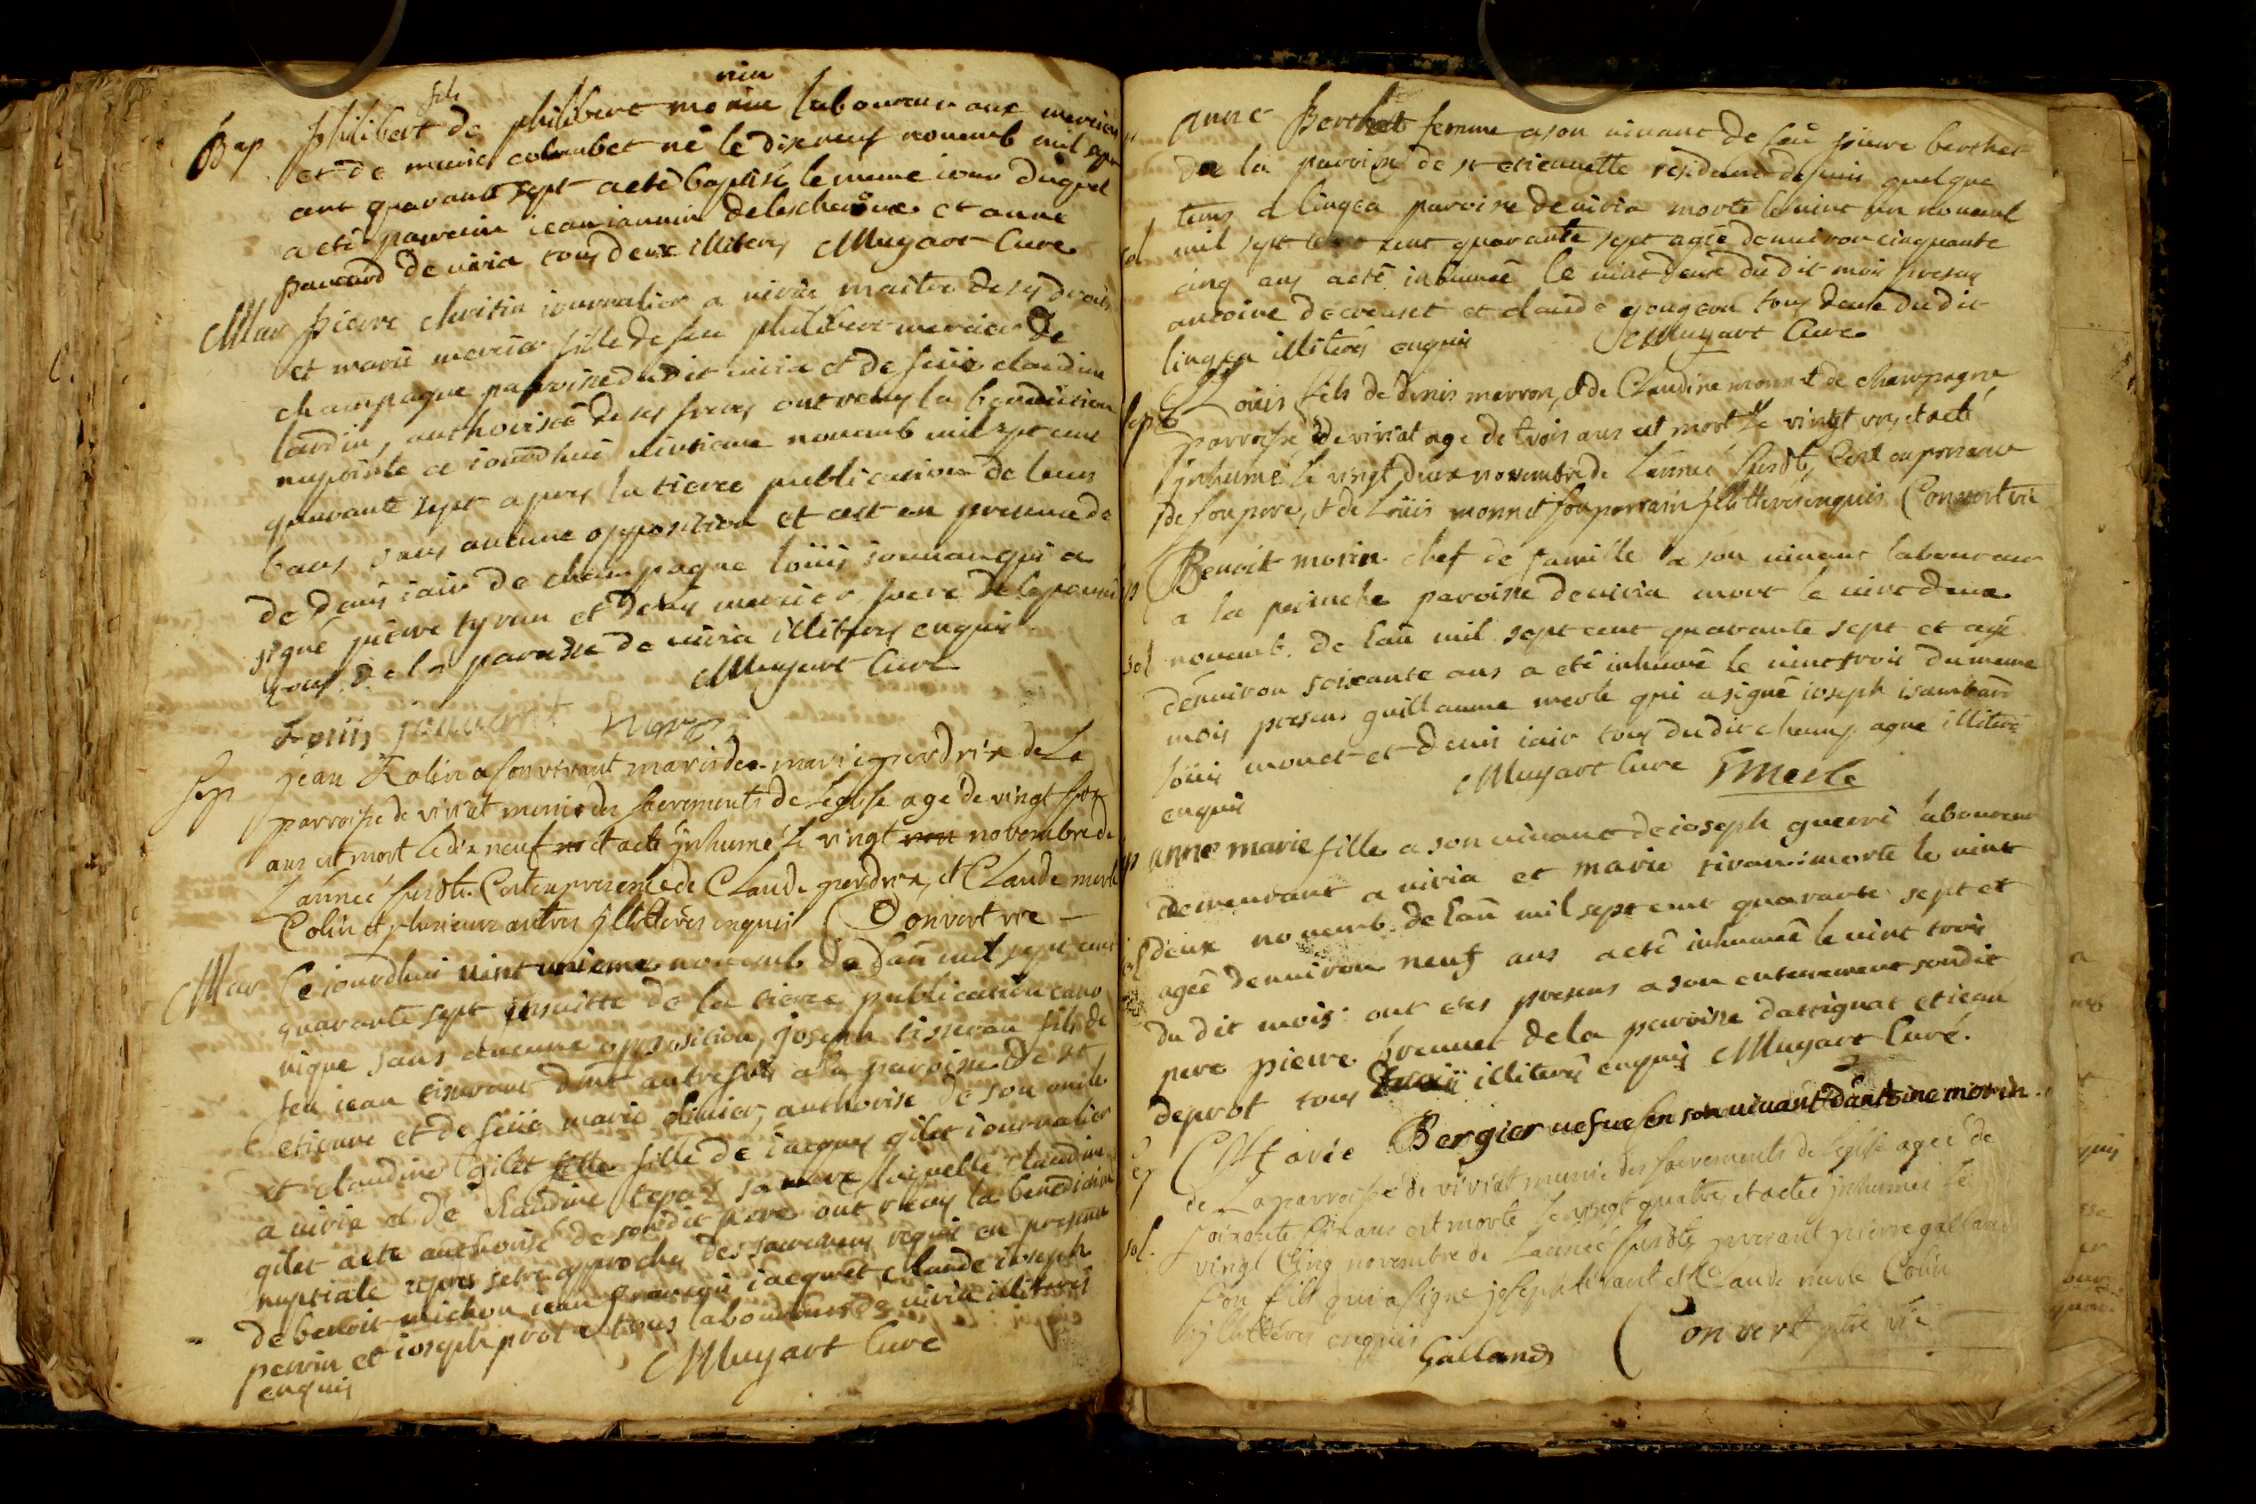 Bap philibert fils de philibert morin laboureur aux mercier
et de marie colombet né le dixneuf novemb mil sept
cent quarante sept a eté baptisé le meme iour duquel
a eté parrein iean iannin et anne
pauceard de viria tous deux illiterés Muyart Curé
Mar pierre christin iournalier a viria maitre de ses droits
et marie mercier fille de feu philibert mercier de
champagne paroisse du dit viria et de feüe claudine
authorisée de ses freres ont receus la benediction
nuptiale ce iourdhui vintieme novemb mil sept cent
quarante sept apres la tierce publication de leurs
bans sans aucune opposition et cest en presence de
de denis iair de champagne loüis iouvan qui a
signé pierre tyran et denis mercier frere de lepouse
tous de la paroisse de viria illiterés enquis
Muyart Curé
Loüis
Sep jean Robin a son vivant mari de marie perdrix de La
parroisse de viriat munis des sacrements de Leglise age de vingt sept
ans est mort le dix neuf et a eté jnhumé le vingt novembre de
Lannéé susdte Cest en presence de Claude perdrix, et Claude merle
Colin et plusieurs autres jllitterés enquis Convert vre
Mar Ce iourdhui vint unieme novemb de lan mil sept cent
quarante sept ensuitte de la tierce publication cano
nique sans aucune opposition, joseph tisseran fils de
feu iean tisserant dune autre fois a la paroisse de st
etienne et de feüe marie olinier, authorisé de son oncle
et claudine gilet fille de iacques gilet iournalier
a viria et de claudine tepaz sa mere laquelle claudine
gilet a eté authorisé de sondit pere ont receus la benediction
nuptiale apres setre approchés des sacremens requis en presence
de benoit michon iean françois iacquet claude ioseph
perrin et ioseph prot tous laboureurs de viria illiterés
enquis Muyart Curé
anne Berthet femme a son vivant de feu pierre berthet
de la paroisse de st etiennette residente depuis quelque
tems a lingea paroisse de viria morte le vint un novemb
mil sept cent quarante sept agée denviron cinquante
cinq ans a eté inhumée le vint deux du dit mois presens
antoine decreuset et claude gougeon tous deux du dit
lingea illiterés enquis Muyart Curé
Sep Loüis fils de denis marron, et de Claudine monnet de champagne
parroisse de viriat age de trois ans est mort le vingt un, et a eté
jnhumé le vingt deux novembre de Lannéé susdte, Cest en presence
de son pere, et de Loüis monnet son parrain jllitterés enquis Convert vre
Benoit morin chef de famille a son vivant laboureur
a la peinche paroisse de viria mort le vint deux
novemb. de lan mil sept cent quarante sept et agé
denviron soixante ans a eté inhumé le vint trois du meme
mois presens guillaume merle qui a signé ioseph isambard
loüis monet et denis iair tous du dit champagne illiterés
enquis Muyart Curé Gmerle
anne marie fille a son vivant de ioseph guerri laboureur
demeurant a viria et marie tivan morte le vint
deux novemb. de lan mil sept cent quarante sept et
agée denviron neuf ans a eté inhumée le vint trois
du dit mois. ont etés presens a son enterrement son dit
pere pierre brevnet de la paroisse dattignat et iean
deprot tous illiterés enquis Muyart Curé.
Marie Bergier vefve en son vivant dantoine morin
de La parroisse de viriat munie des sacrements de Leglise ageé de
soixante six ans est morte le vingt quatre, et a eteé jnhumeé le
vingt Cinq novembre de Lannéé susdte, presant pierre galland
son fils qui a signé joseph tivant et Claude merle Colin
jllitterés enquis
Galland Convert ptre vre